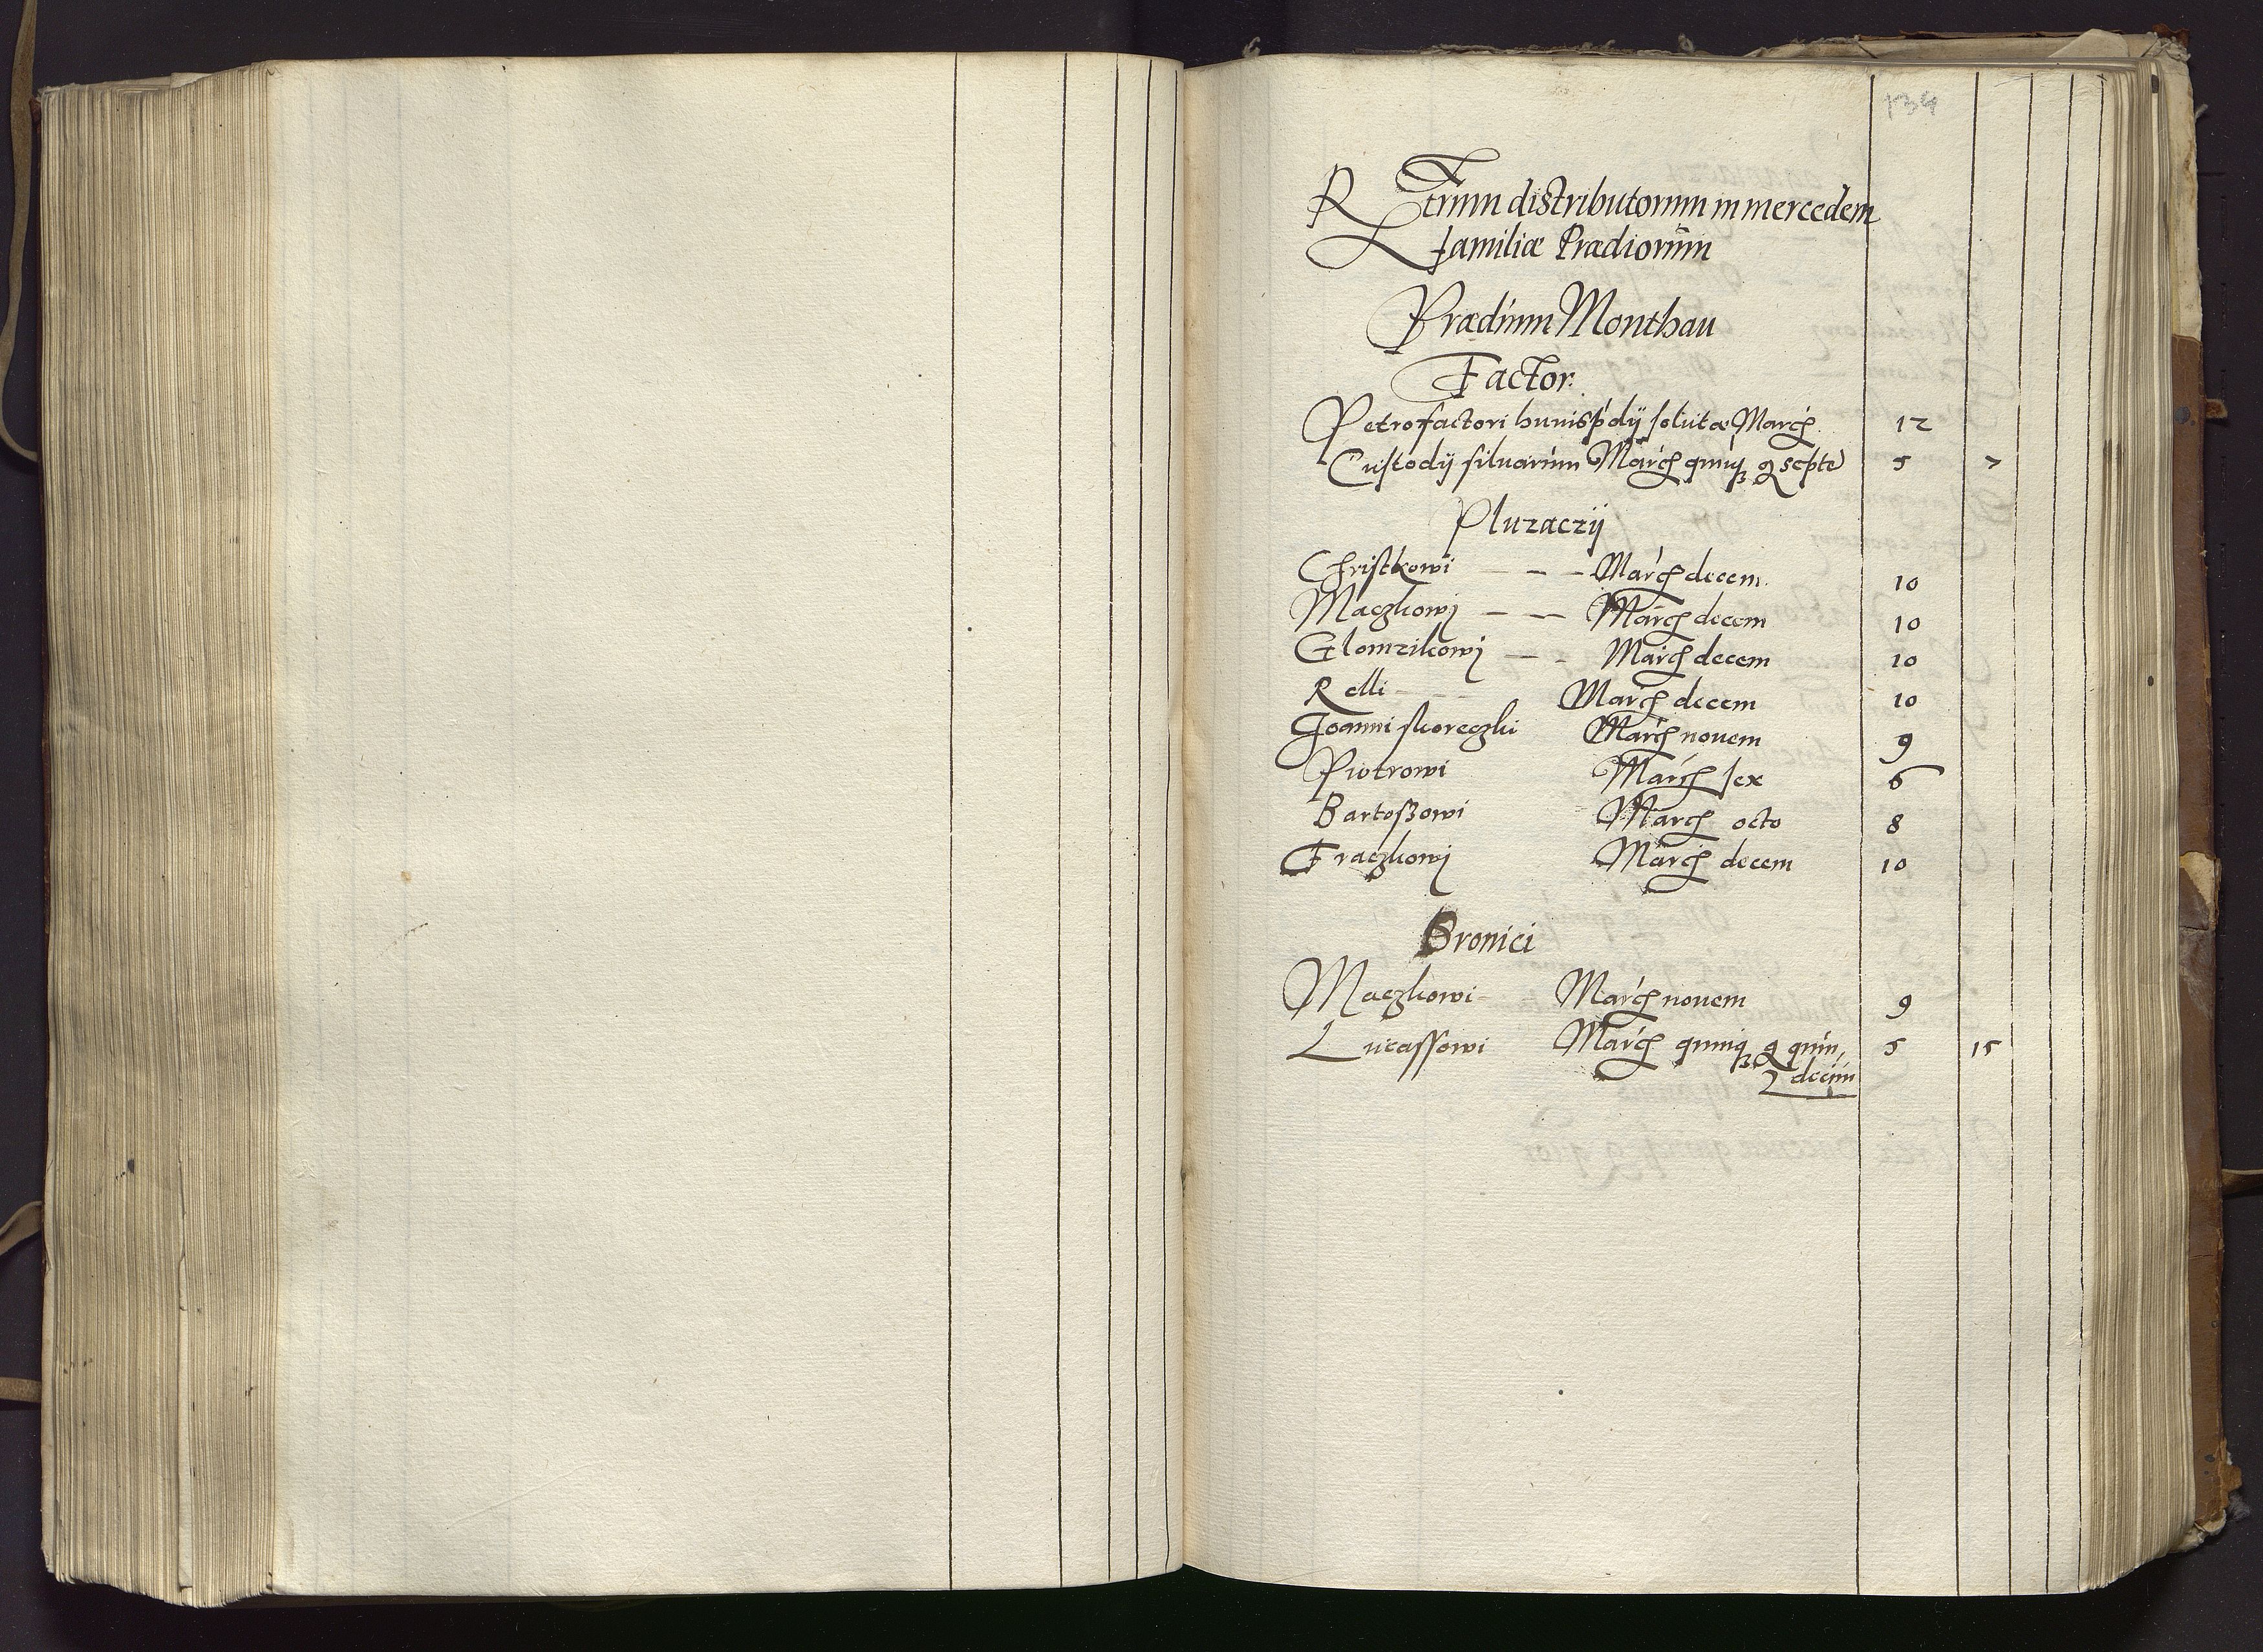 134
REtrum distributorum in mercedem
familiæ Prædiorum
Prædium Monthau
Factor.
Petro factori huius pdij solutæ March 12
Custody siluarum March quinq3 g septe 5 7
Pluzaczÿ
Christkowi — — — March decem. 10
Maczkowj — — March decem 10
Glomzikowj — - March decem 10
Relli March decem 10
Joanni skoreczki March nouem 9
Piotrowi March sex 6
Bartoßowi March octo 8
Fraczkowj March decem 10
Bronici
Maczkowi March nouem 9
Lucassowi March quinq3 g quin, 5 15
decim